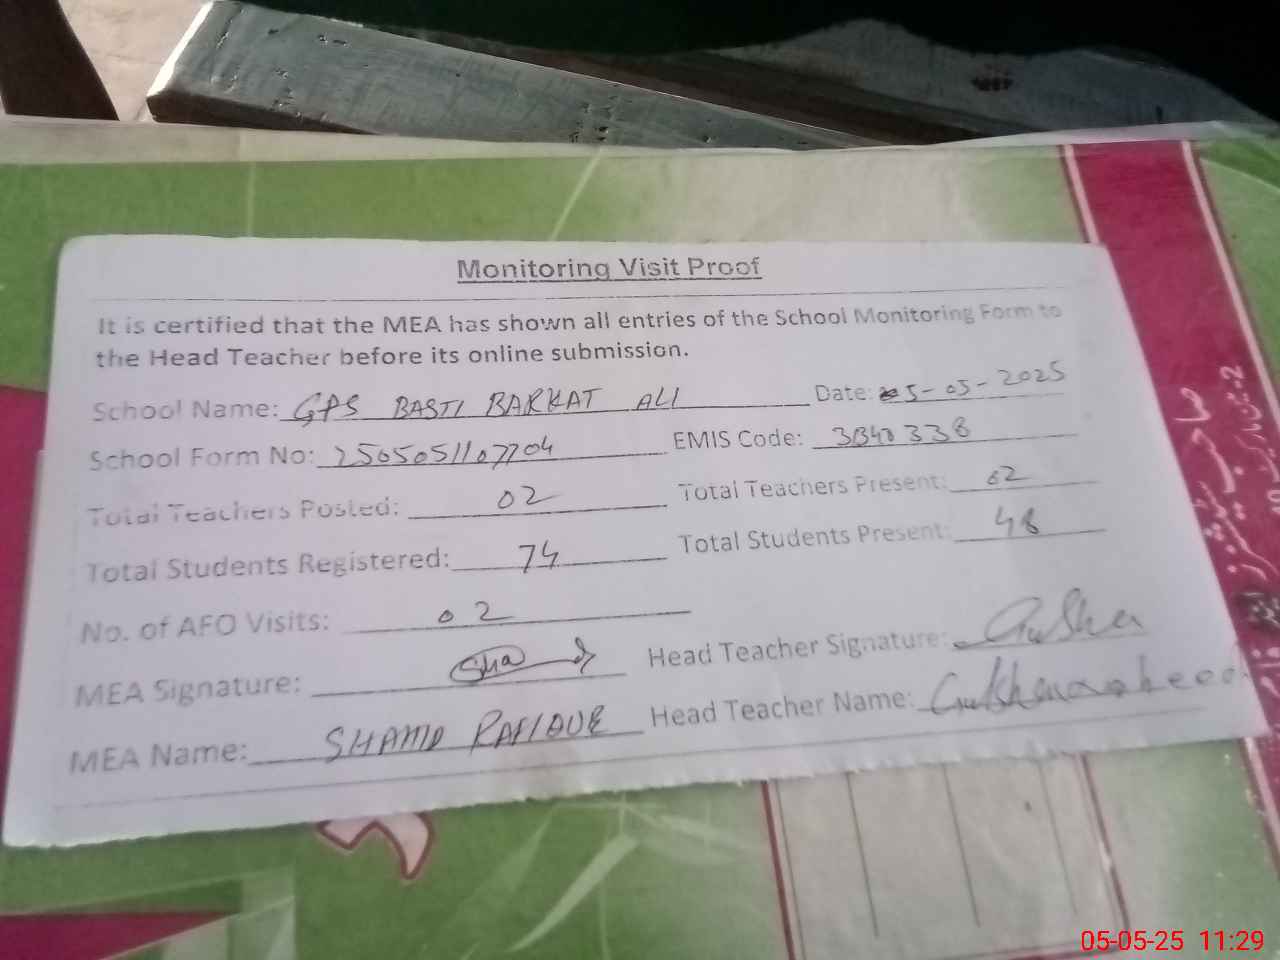 Monitoring Visit Proof
It is certified that the MEA has shown all entries of the School Monitoring Form to
the Head Teacher before its online submission.
School Name: GPS BASTI BARKAT ALI Date: 5-05-2025
School Form No: 2505051107704 EMIS Code: 31340338
Total Teachers Posted: 02 Total Teachers Present: 02
Total Students Registered: 74 Total Students Present: 48
No. of AFO Visits: 02
MEA Signature: Head Teacher Signature:
MEA Name: SHAHID RAFIQUE Head Teacher Name:
05-05-25 11:29